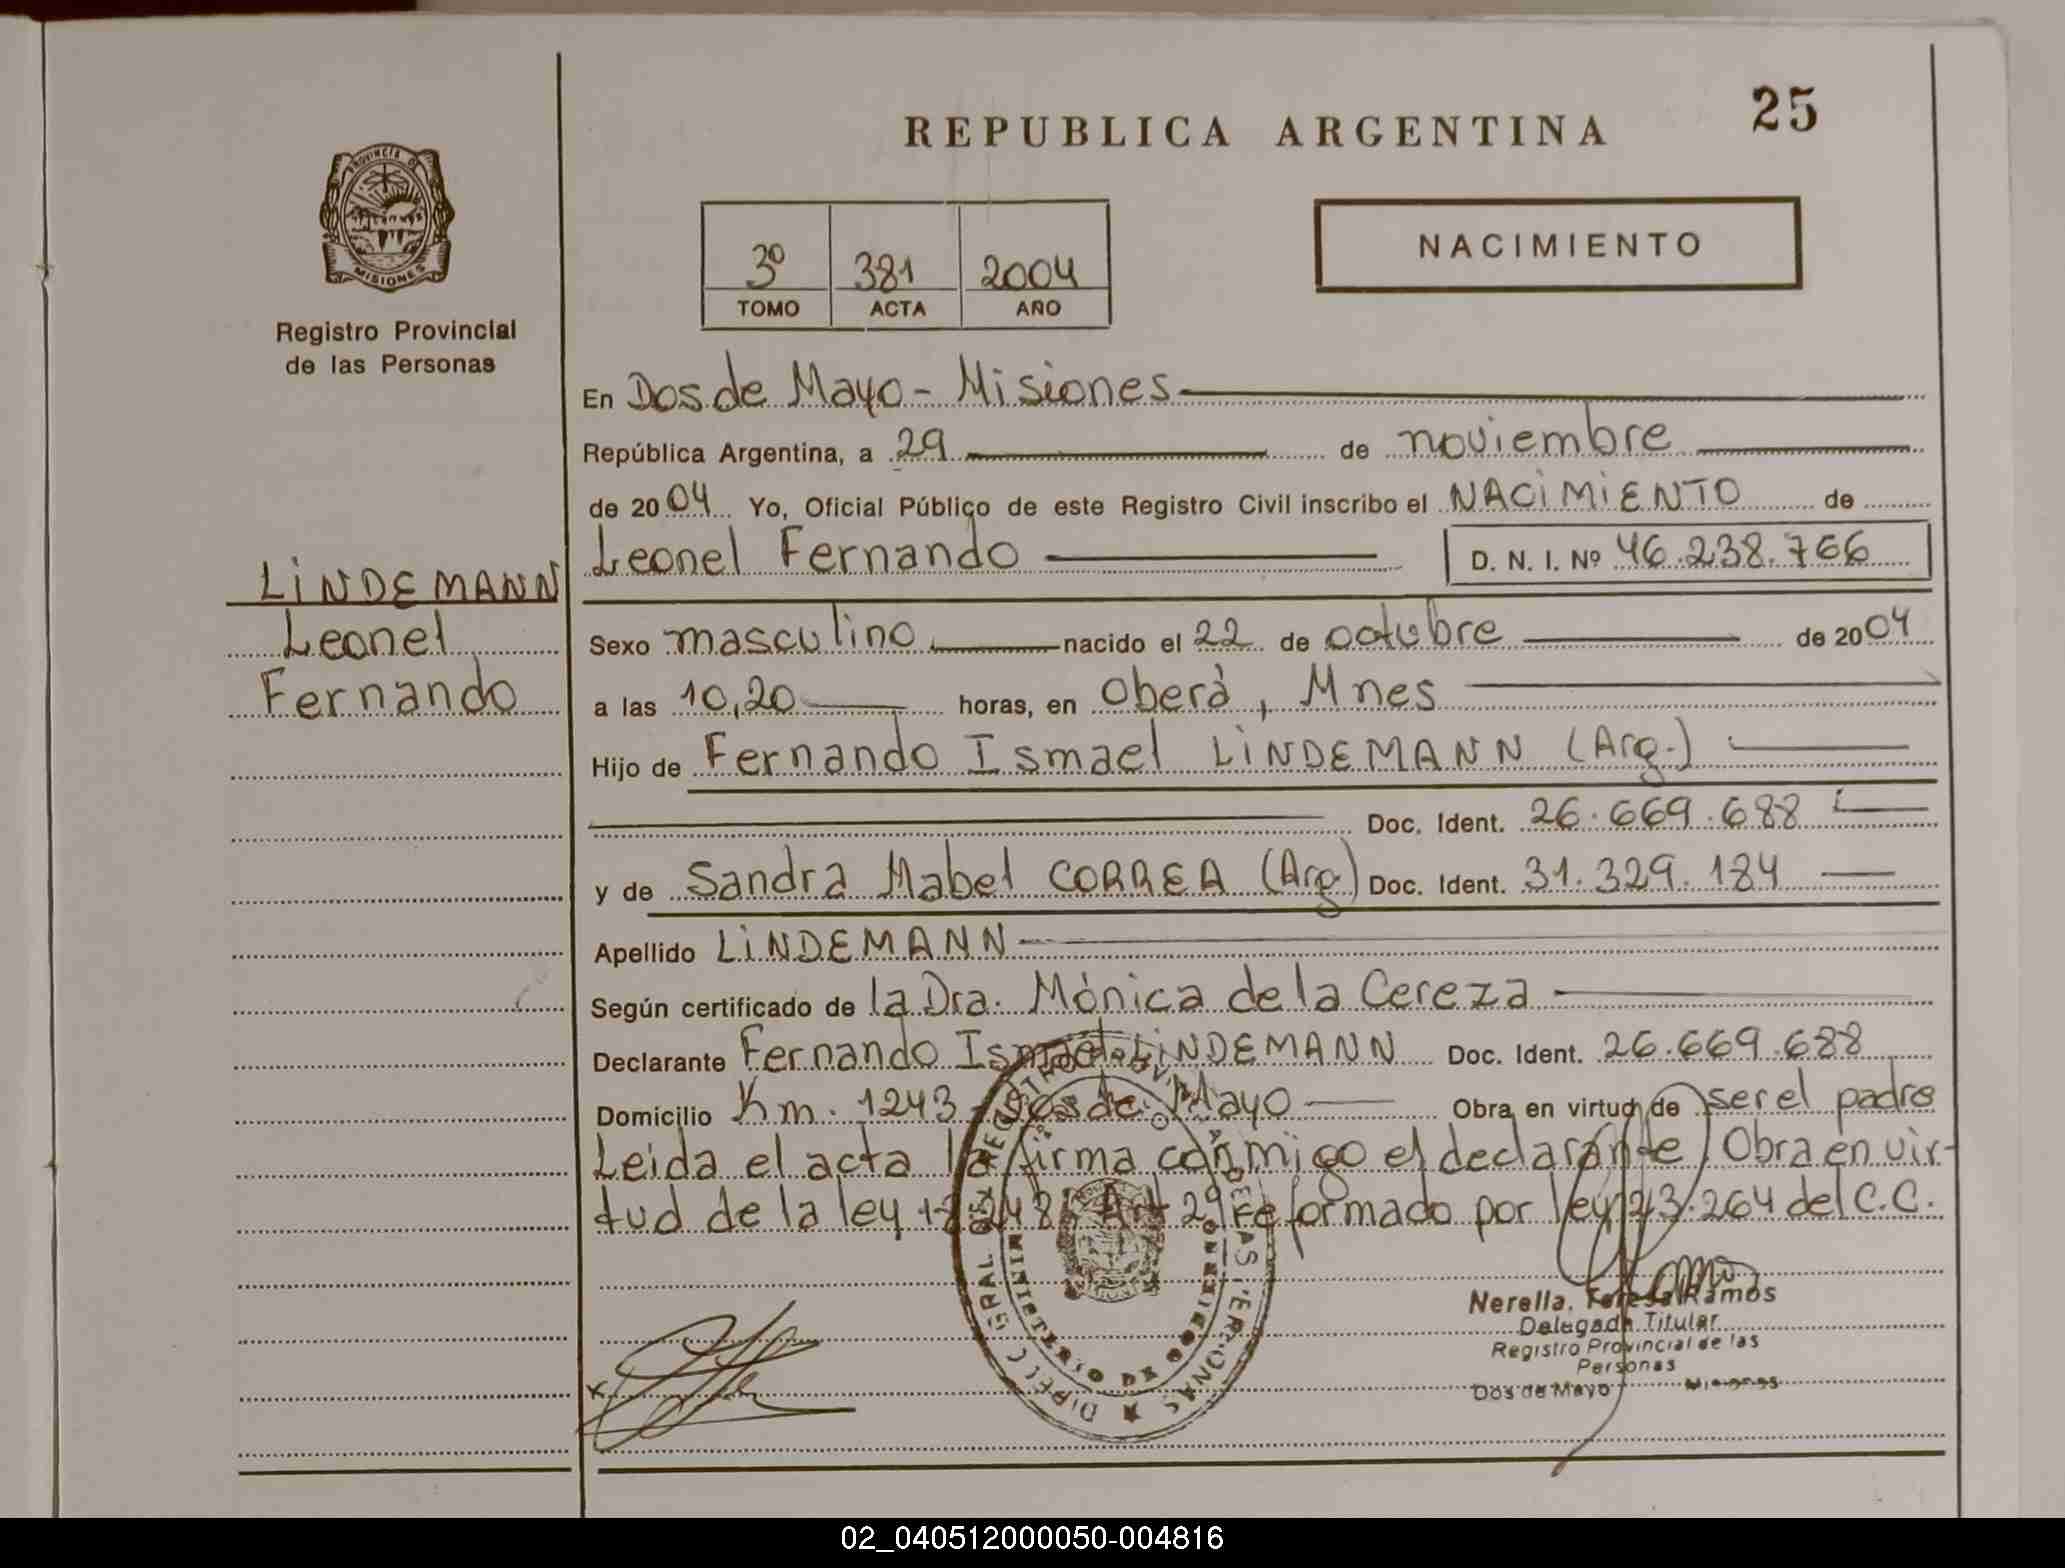 REPUBLICA ARGENTINA 25
PROVINCIA DE
MISIONES
Registro Provincial
de las Personas
3º 381 2004
TOMO ACTA AÑO
NACIMIENTO
En Dos de Mayo - Misiones
República Argentina, a 29 de noviembre
de 2004 Yo, Oficial Público de este Registro Civil inscribo el NACIMIENTO de
Leonel Fernando D. N. I. Nº 46.238.766
LINDEMANN
Leonel
Fernando
Sexo masculino nacido el 22 de octubre de 2004
a las 10,20 horas, en Oberá, Mnes
Hijo de Fernando Ismael LINDEMANN (Arg.)
Doc. Ident. 26.669.688
y de Sandra Mabel CORREA (Arg) Doc. Ident. 31.329.184
Apellido LINDEMANN
Según certificado de la Dra. Mónica de la Cereza
Declarante Fernando Ismael LINDEMANN Doc. Ident. 26.669.688
Domicilio Km. 1243 - Dos de Mayo Obra en virtud de ser el padre
Leida el acta la firma conmigo el declarante. Obra en vir-
tud de la ley Art 2º reformado por ley 23.264 del C.C.
MINISTERIO DE GOBIERNO
Nerella Teresa Ramos
Delegada Titular
Registro Provincial de las
Personas
Dos de Mayo Misiones
02_040512000050-004816